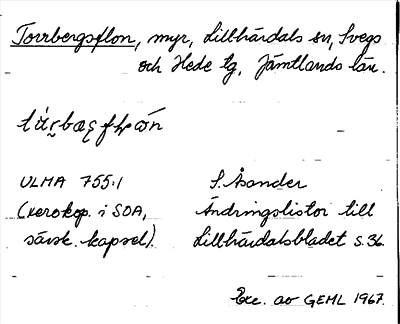 Torrbergsflon, myr, Lillhärdals sn, Svegs
och Hede tg, Jämtlands län.
ULMA 755:1
S. Åsander
(xerokop. i SOA,
Ändringslistor till
särsk. kapsel).
Lillhärdalsbladet s. 36.
Exc. av GEML 1967.